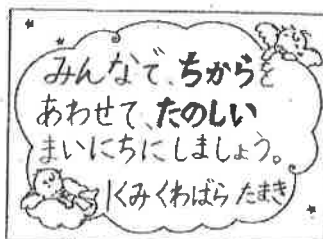 みんなで、ちからを
あわせて、たのしい
まいにちにしましょう。
1くみくわばら たまき